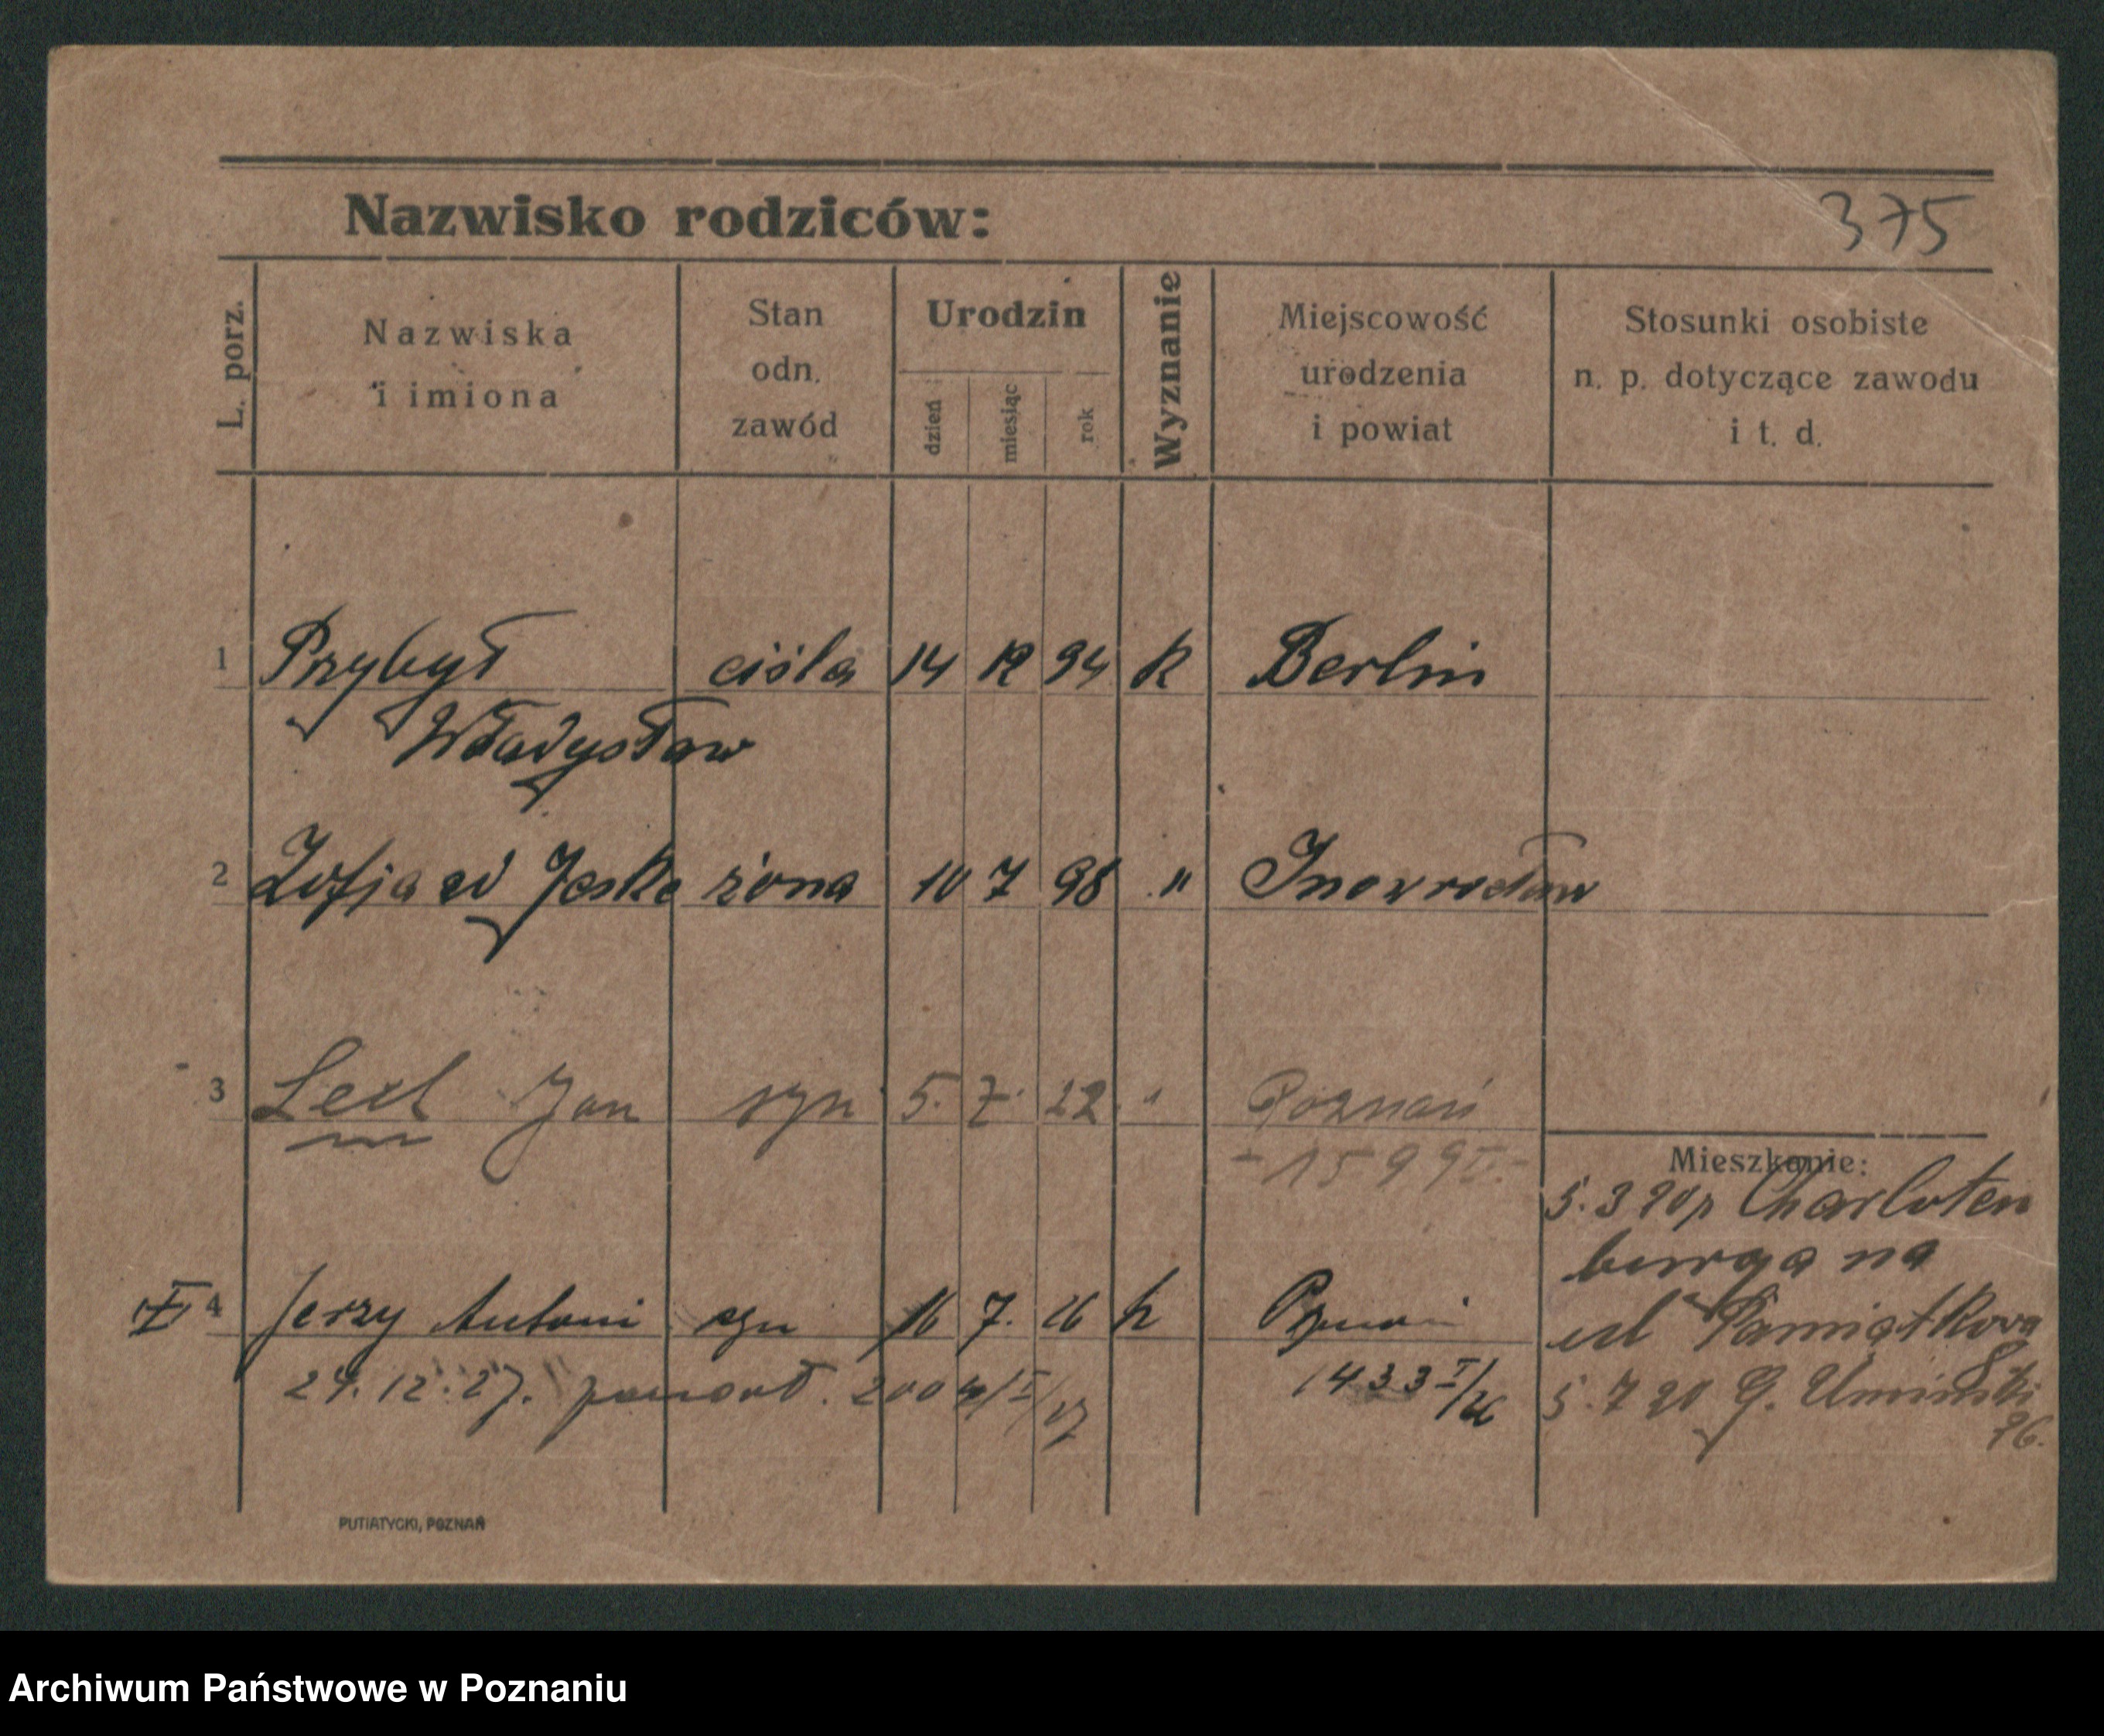 Nazwisko rodziców:
375
L. porz.
Nazwiska
i imiona
Stan
odn.
zawód
Urodzin
dzień
miesiąc
rok
Wyznanie
Miejscowość
urodzenia
i powiat
Stosunki osobiste
n. p. dotyczące zawodu
i t. d.
1 Przybył cieśla 14 12 94 k Berlin
Władysław
2 Zofja zd Jeske żona 10 7 98 " Inowrocław
3 Lech Jan syn 5. 7. 22 " Poznań
- 1599 I. -
Mieszkanie:
5.3 20 p Charloten
burga na
ul Pamiątkowa
4 Jerzy Antoni syn 16 7. 26 k Poznań
1433 I/26
24.12.27. 200 /I/27
5.7 20 G. Umiński
26.
PUTIATYCKI, POZNAŃ
Archiwum Państwowe w Poznaniu